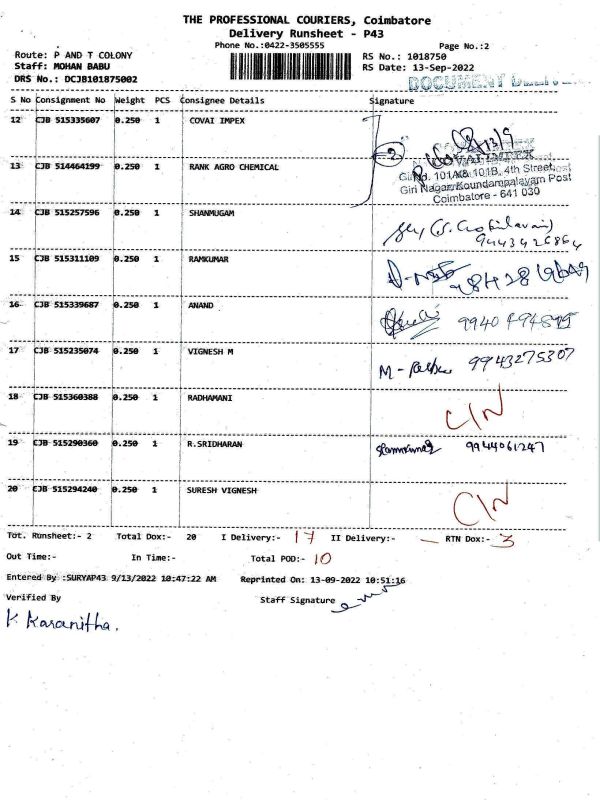 THE PROFESSIONAL COURIERS, Coimbatore
Delivery Runsheet - P43
Phone No.:0422-3505555 Page No.:2
Route: P AND T COLONY RS No.: 1018750
Staff: MOHAN BABU RS Date: 13-Sep-2022
DRS No.: DCJB101875002
DOCUMENT
S No Consignment No Weight PCS Consignee Details Signature
12 CJB 515335607 0.250 1 COVAI IMPEX
13/9
2
COVAI IMPEX
13 CJB 514464199 0.250 1 RANK AGRO CHEMICAL
101A& 101B, 4th Street,
Giri Nagar, Koundampalayam Post
Coimbatore - 641 030
14 CJB 515257596 0.250 1 SHANMUGAM
9443426864
15 CJB 515311109 0.250 1 RAMKUMAR
16 CJB 515339687 0.250 1 ANAND
17 CJB 515235074 0.250 1 VIGNESH M
9943275307
18 CJB 515360388 0.250 1 RADHAMANI C/N
19 CJB 515290360 0.250 1 R.SRIDHARAN 9944061247
20 CJB 515294240 0.250 1 SURESH VIGNESH C/N
Tot. Runsheet:- 2 Total Dox:- 20 I Delivery:- 17 II Delivery:- — RTN Dox:- 3
Out Time:- In Time:- Total POD:- 10
Entered By :SURYAP43 9/13/2022 10:47:22 AM Reprinted On: 13-09-2022 10:51:16
Verified By Staff Signature
K Karanitha.